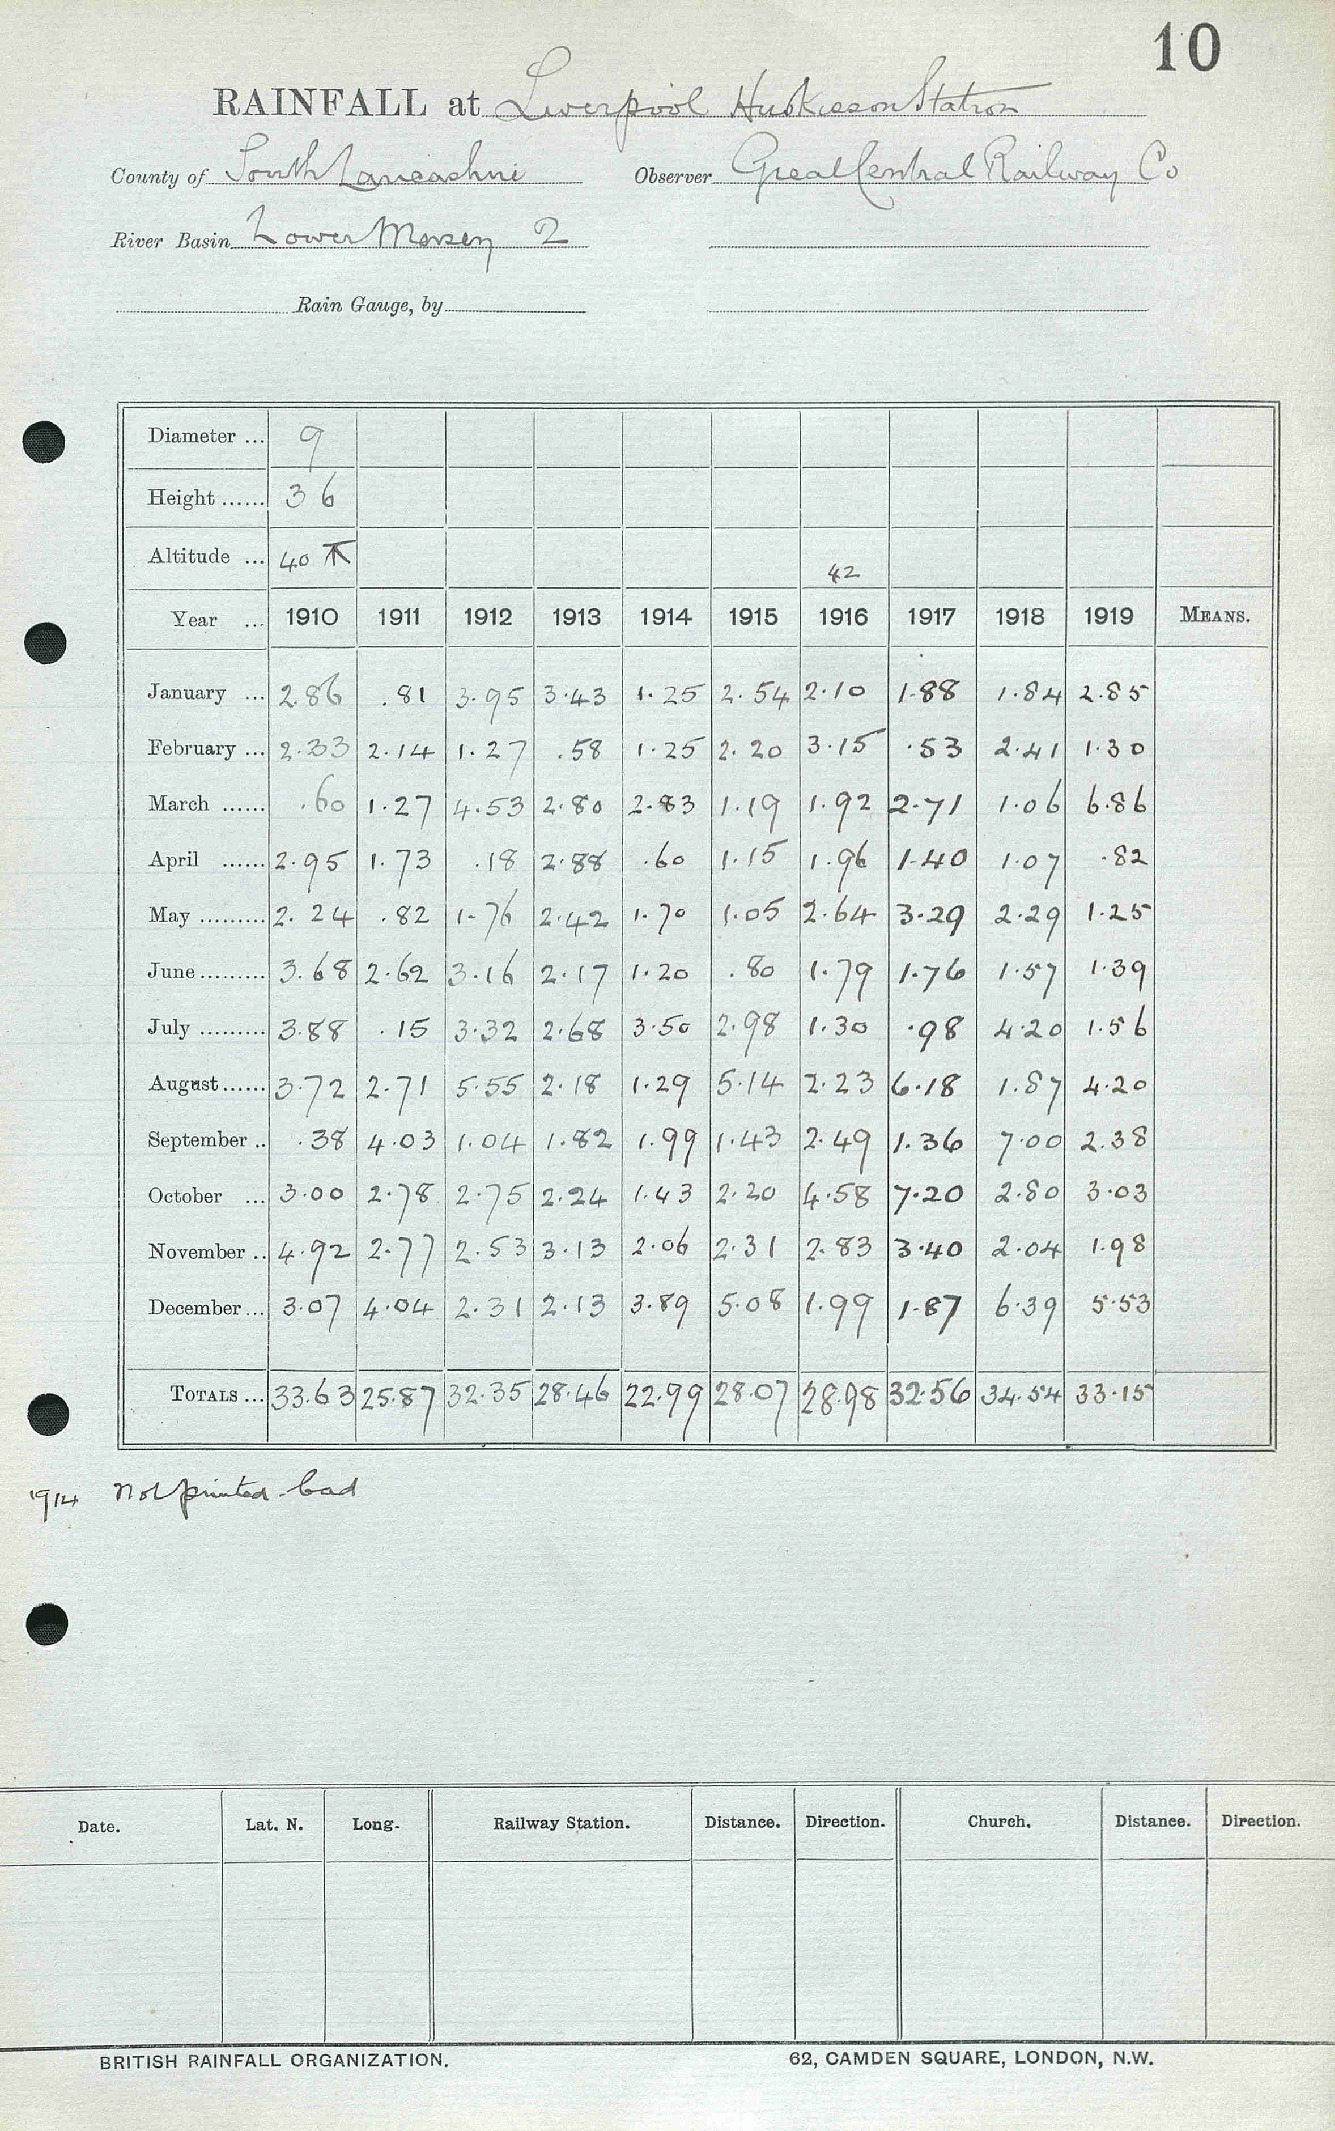 10
RAINFALL at Liverpool Huskisson Station
County of South Lancashire Observer Great Central Railway Co
River Basin Lower Mersey 2
Rain Gauge, by
Diameter ... 9
Height ...... 36
Altitude ... 40 42
Year ... 1910 1911 1912 1913 1914 1915 1916 1917 1918 1919 MEANS.
January ... 2.86 .81 3.95 3.43 1.25 2.54 2.10 1.88 1.84 2.85
February ... 2.33 2.14 1.27 .58 1.25 2.20 3.15 .53 2.41 1.30
March ...... .60 1.27 4.53 2.80 2.83 1.19 1.92 2.71 1.06 6.86
April ...... 2.95 1.73 .18 2.88 .60 1.15 1.96 1.40 1.07 .82
May ......... 2.24 .82 1.76 2.42 1.70 1.05 2.64 3.29 2.29 1.25
June ......... 3.68 2.62 3.16 2.17 1.20 .80 1.79 1.76 1.57 1.39
July ......... 3.88 .15 3.32 2.68 3.50 2.98 1.30 .98 4.20 1.56
August ...... 3.72 2.71 5.55 2.18 1.29 5.14 2.23 6.18 1.87 4.20
September .. .38 4.03 1.04 1.82 1.99 1.43 2.49 1.36 7.00 2.38
October ... 3.00 2.78 2.75 2.24 1.43 2.20 4.58 7.20 2.80 3.03
November .. 4.92 2.77 2.53 3.13 2.06 2.31 2.83 3.40 2.04 1.98
December ... 3.07 4.04 2.31 2.13 3.89 5.08 1.99 1.87 6.39 5.53
TOTALS ... 33.63 25.87 32.35 28.46 22.99 28.07 28.98 32.56 34.54 33.15
1914 Not printed - bad
Date. Lat. N. Long. Railway Station. Distance. Direction. Church. Distance. Direction.
BRITISH RAINFALL ORGANIZATION. 62, CAMDEN SQUARE, LONDON, N.W.